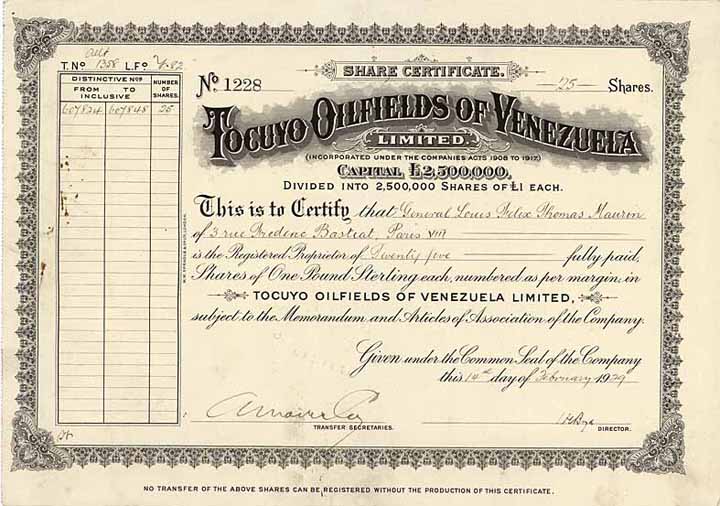 T. No 1358 L.Fo 4.82
DISTINCTIVE Nos
FROM TO
INCLUSIVE
NUMBER
OF
SHARES.
607824 607848 25
SHARE CERTIFICATE.
No. 1228 25 Shares.
TOCUYO OILFIELDS OF VENEZUELA
LIMITED.
(INCORPORATED UNDER THE COMPANIES ACTS 1908 TO 1917)
CAPITAL £2,500,000,
DIVIDED INTO 2,500,000 SHARES OF £1 EACH.
This is to Certify that General Louis Felix Thomas Maurin
of 3 rue Frederic Bastiat, Paris VIII
is the Registered Proprietor of Twenty five fully paid
Shares of One Pound Sterling each, numbered as per margin, in
TOCUYO OILFIELDS OF VENEZUELA LIMITED,
subject to the Memorandum and Articles of Association of the Company.
Given under the Common Seal of the Company
this 14th day of February 1929
TRANSFER SECRETARIES.
DIRECTOR.
NO TRANSFER OF THE ABOVE SHARES CAN BE REGISTERED WITHOUT THE PRODUCTION OF THIS CERTIFICATE.